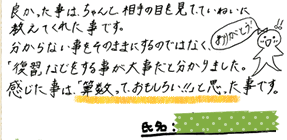 良かった事は、ちゃんと相手の目を見てていねいに
教えてくれた事です。
ありがとう!
分からない事をそのままにするのではなく、
「復習」などをする事が大事だと分かりました。
感じた事は、「算数って、おもしろい!!」と思った事です。
氏名: